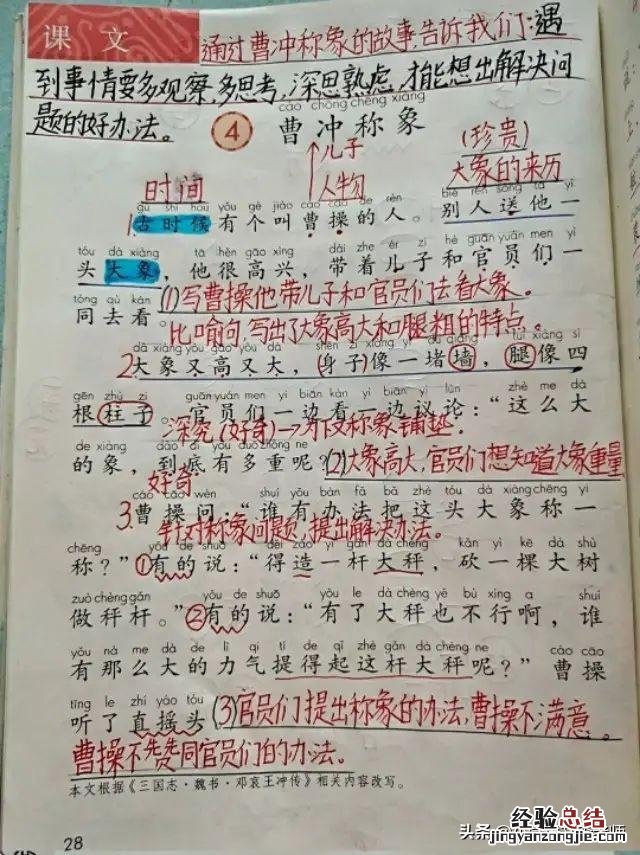 课文
通过曹冲称象的故事,告诉我们:遇
到事情要多观察,多思考,深思熟虑,才能想出解决问
题的好办法。
cáo chōng chēng xiàng
④ 曹冲称象
儿子
人物
时间
(珍贵)
大象的来历
gǔ shí hou yǒu gè jiào cáo cāo de rén bié rén sòng tā yì
1古时候有个叫曹操的人。别人送他一
tóu dà xiàng tā hěn gāo xìng dài zhe ér zi hé guān yuán men yì
头大象,他很高兴,带着儿子和官员们一
tóng qù kàn
同去看。
(1)写曹操他带儿子和官员们去看大象。
比喻句,写出了大象高大和腿粗的特点。
2大象又高又大,身子像一堵墙,腿像四
gēn zhù zi guān yuán men yì biān kàn yì biān yì lùn zhè me dà
根柱子。官员们一边看一边议论:“这么大
深究(好奇)→为下文称象铺垫.
de xiàng dào dǐ yǒu duō zhòng ne
的象,到底有多重呢?
(2)大象高大,官员们想知道大象重量
好奇
cáo cāo wèn shuí yǒu bàn fǎ bǎ zhè tóu dà xiàng chēng yì
3.曹操问:“谁有办法把这头大象称一
针对称象问题,提出解决办法。
chēng yǒu de shuō děi zào yì gǎn dà chèng kǎn yì kē dà shù
称?”①有的说:“得造一杆大秤,砍一棵大树
zuò chèng gǎn yǒu de shuō yǒu le dà chèng yě bù xíng a shuí
做秤杆。”②有的说:“有了大秤也不行啊,谁
yǒu nà me dà de lì qi tí de qǐ zhè gǎn dà chèng ne cáo cāo
有那么大的力气提得起这杆大秤呢?”曹操
tīng le zhí yáo tóu
听了直摇头
(3)官员们提出称象的办法,曹操不满意。
曹操不赞同官员们的办法。
本文根据《三国志·魏书·邓哀王冲传》相关内容改写。
28
头条
经验总结
jingyanzongjie.com